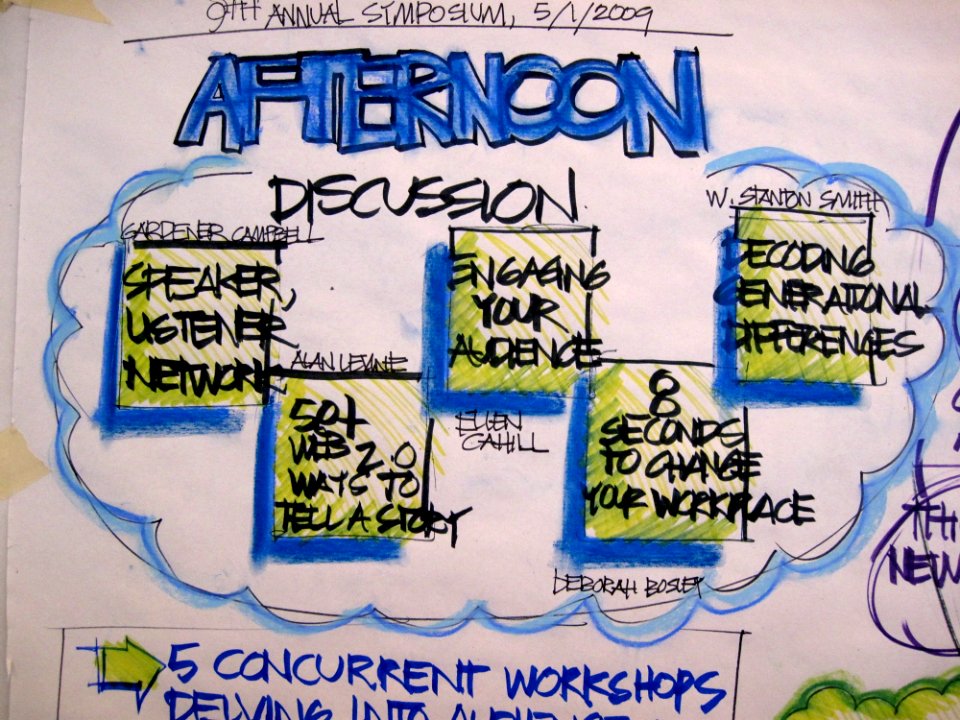 9TH ANNUAL SYMPOSIUM, 5/1/2009
AFTERNOON
DISCUSSION
GARDENER CAMPBELL
SPEAKER,
LISTENER
NETWORK
ALAN LEVINE
50+
WEB 2.0
WAYS TO
TELL A STORY
ENGAGING
YOUR
AUDIENCE
ELLEN
CAHILL
8
SECONDS
TO CHANGE
YOUR WORKPLACE
DEBORAH BOSLEY
W. STANTON SMITH
DECODING
GENERATIONAL
DIFFERENCES
5 CONCURRENT WORKSHOPS
DELVING INTO AUDIENCE